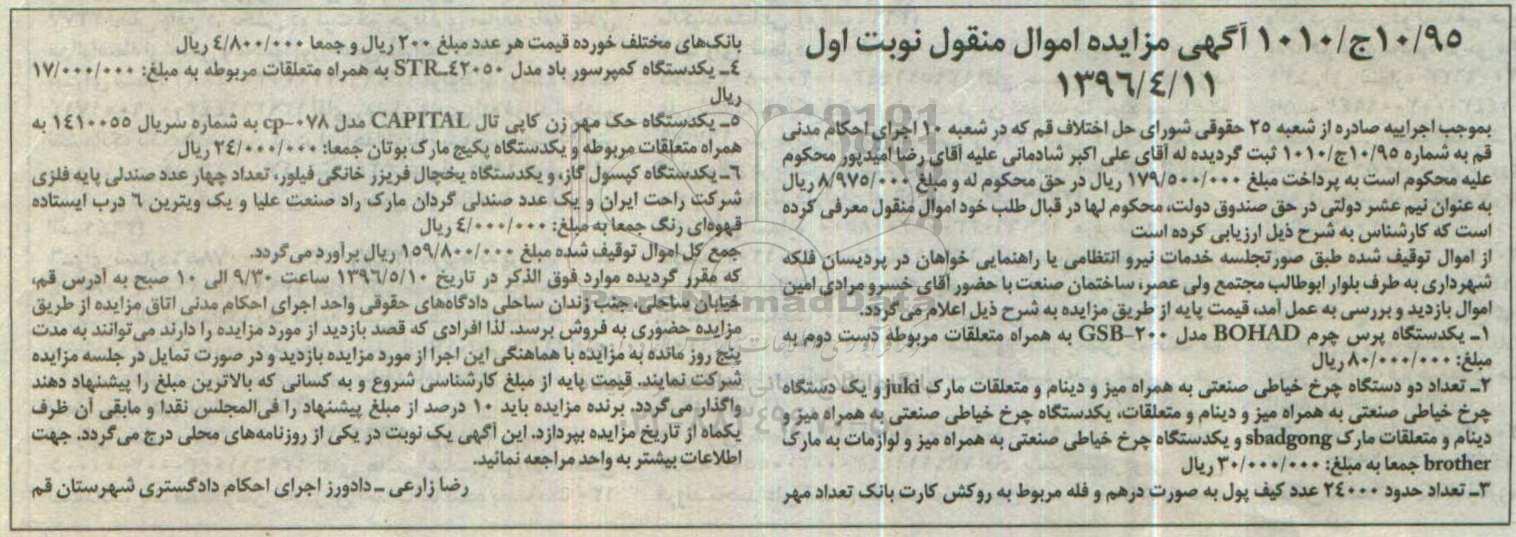 ۱۰/۹۵ج/۱۰۱۰ آگهی مزایده اموال منقول نوبت اول
۱۳۹۶/۴/۱۱
بموجب اجراییه صادره از شعبه ۲۵ حقوقی شورای حل اختلاف قم که در شعبه ۱۰ اجرای احکام مدنی
قم به شماره ۱۰/۹۵ج/۱۰۱۰ ثبت گردیده له آقای علی اکبر شادمانی علیه آقای رضا امیدپور محکوم
علیه محکوم است به پرداخت مبلغ ۱۷۹/۵۰۰/۰۰۰ ریال در حق محکوم له و مبلغ ۸/۹۷۵/۰۰۰ ریال
به عنوان نیم عشر دولتی در حق صندوق دولت، محکوم لها در قبال طلب خود اموال منقول معرفی کرده
است که کارشناس به شرح ذیل ارزیابی کرده است
از اموال توقیف شده طبق صورتجلسه خدمات نیرو انتظامی یا راهنمایی خواهان در پردیسان فلکه
شهرداری به طرف بلوار ابوطالب مجتمع ولی عصر، ساختمان صنعت با حضور آقای خسرو مرادی امین
اموال بازدید و بررسی به عمل آمد، قیمت پایه از طریق مزایده به شرح ذیل اعلام می‌گردد.
۱ـ یکدستگاه پرس چرم BOHAD مدل GSB-۲۰۰ به همراه متعلقات مربوطه دست دوم به
مبلغ: ۸۰/۰۰۰/۰۰۰ ریال
۲ـ تعداد دو دستگاه چرخ خیاطی صنعتی به همراه میز و دینام و متعلقات مارک juki و یک دستگاه
چرخ خیاطی صنعتی به همراه میز و دینام و متعلقات، یکدستگاه چرخ خیاطی صنعتی به همراه میز و
دینام و متعلقات مارک sbadgong و یکدستگاه چرخ خیاطی صنعتی به همراه میز و لوازمات به مارک
brother جمعا به مبلغ: ۳۰/۰۰۰/۰۰۰ ریال
۳ـ تعداد حدود ۲۴۰۰۰ عدد کیف پول به صورت درهم و فله مربوط به روکش کارت بانک تعداد مهر
بانک‌های مختلف خورده قیمت هر عدد مبلغ ۲۰۰ ریال و جمعا ۴/۸۰۰/۰۰۰ ریال
۴ـ یکدستگاه کمپرسور باد مدل STR-۴۲۰۵۰ به همراه متعلقات مربوطه به مبلغ: ۱۷/۰۰۰/۰۰۰
ریال
۵ـ یکدستگاه حک مهر زن کاپی تال CAPITAL مدل cp-۰۷۸ به شماره سریال ۱۴۱۰۰۵۵ به
همراه متعلقات مربوطه و یکدستگاه پکیج مارک بوتان جمعا: ۲۴/۰۰۰/۰۰۰ ریال
۶ـ یکدستگاه کپسول گاز، و یکدستگاه یخچال فریزر خانگی فیلور، تعداد چهار عدد صندلی پایه فلزی
شرکت راحت ایران و یک عدد صندلی گردان مارک راد صنعت علیا و یک ویترین ۶ درب ایستاده
قهوه‌ای رنگ جمعا به مبلغ: ۴/۰۰۰/۰۰۰ ریال
جمع کل اموال توقیف شده مبلغ ۱۵۹/۸۰۰/۰۰۰ ریال برآورد می‌گردد.
که مقرر گردیده موارد فوق الذکر در تاریخ ۱۳۹۶/۵/۱۰ ساعت ۹/۳۰ الی ۱۰ صبح به آدرس قم،
خیابان ساحلی، جنب زندان ساحلی دادگاه‌های حقوقی واحد اجرای احکام مدنی اتاق مزایده از طریق
مزایده حضوری به فروش برسد. لذا افرادی که قصد بازدید از مورد مزایده را دارند می‌توانند به مدت
پنج روز مانده به مزایده با هماهنگی این اجرا از مورد مزایده بازدید و در صورت تمایل در جلسه مزایده
شرکت نمایند. قیمت پایه از مبلغ کارشناسی شروع و به کسانی که بالاترین مبلغ را پیشنهاد دهند
واگذار می‌گردد. برنده مزایده باید ۱۰ درصد از مبلغ پیشنهاد را فی‌المجلس نقدا و مابقی آن ظرف
یکماه از تاریخ مزایده بپردازد. این آگهی یک نوبت در یکی از روزنامه‌های محلی درج می‌گردد. جهت
اطلاعات بیشتر به واحد مراجعه نمائید.
رضا زارعی ـ دادورز اجرای احکام دادگستری شهرستان قم